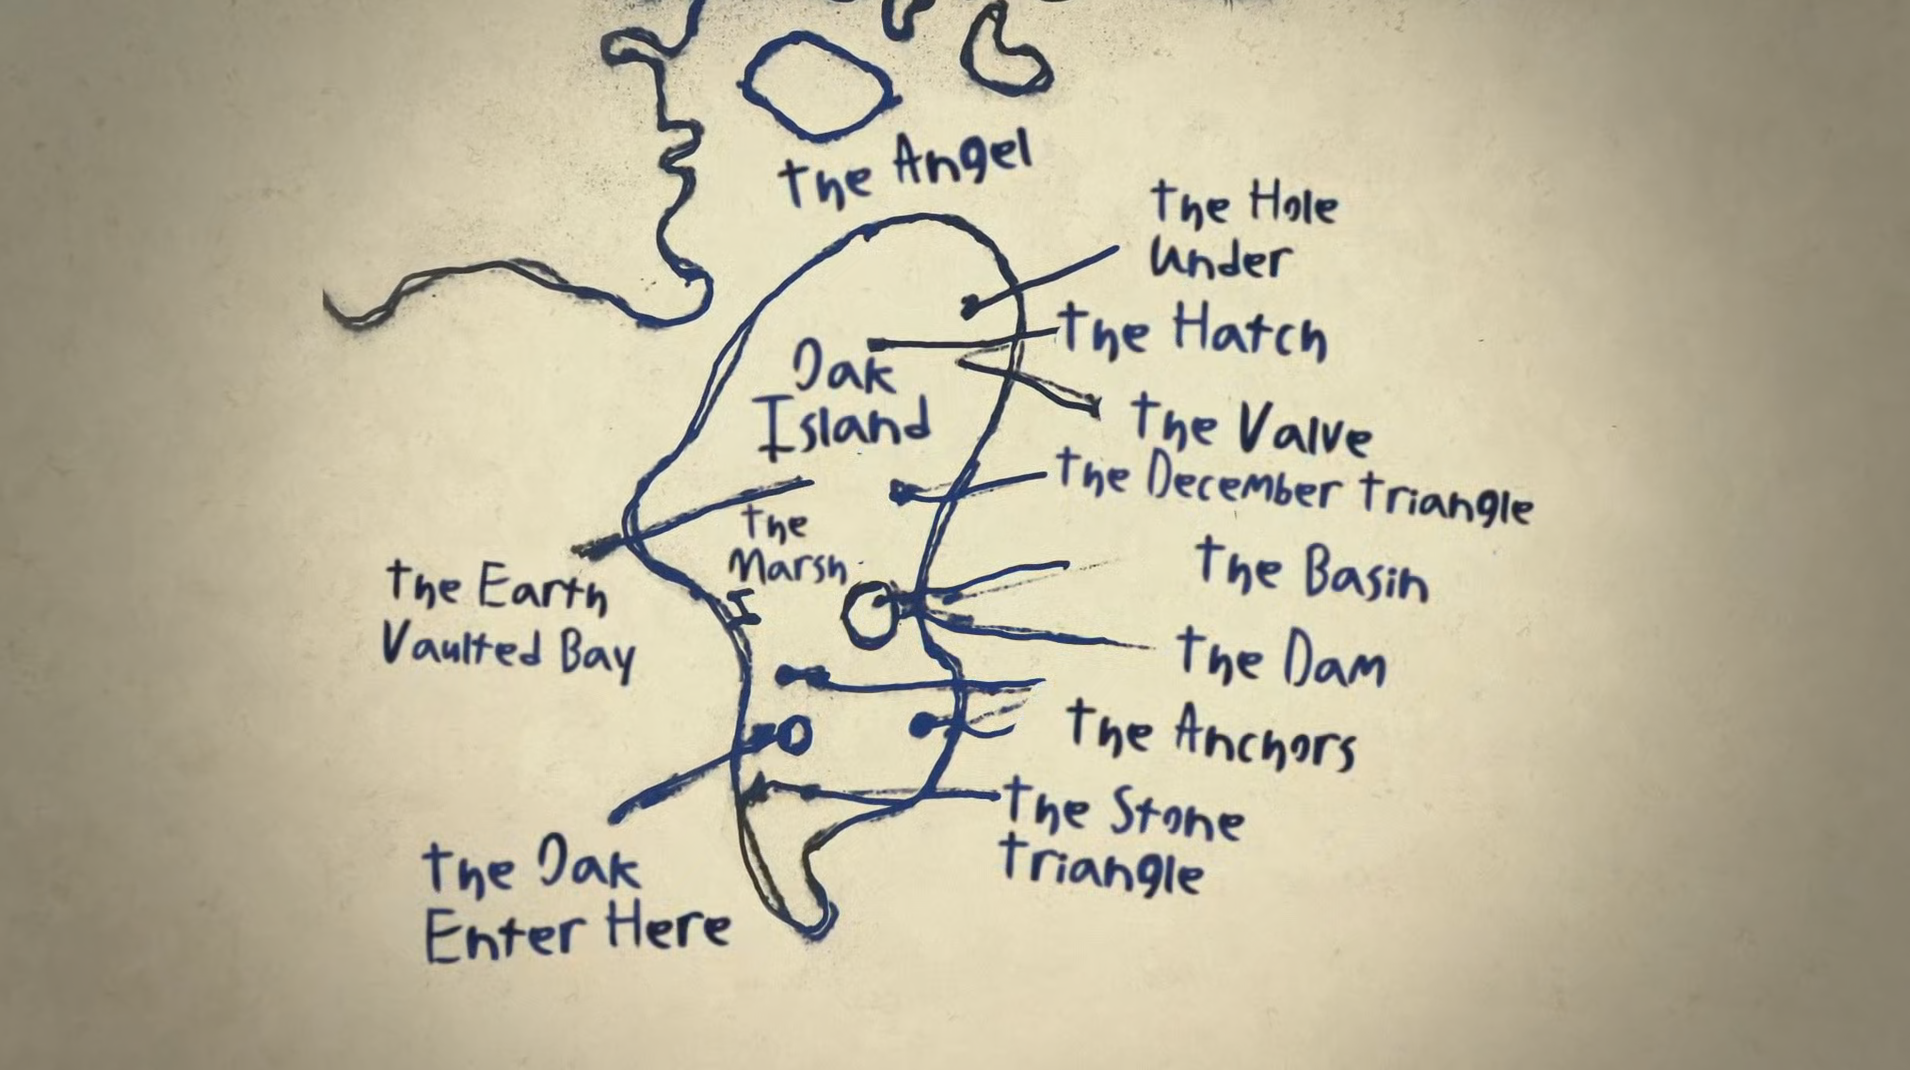 the Angel
the Hole
Under
the Hatch
Oak
Island
the Valve
the December triangle
the
Marsh
the Basin
the Earth
Vaulted Bay
the Dam
the Anchors
the Stone
triangle
the Oak
Enter Here